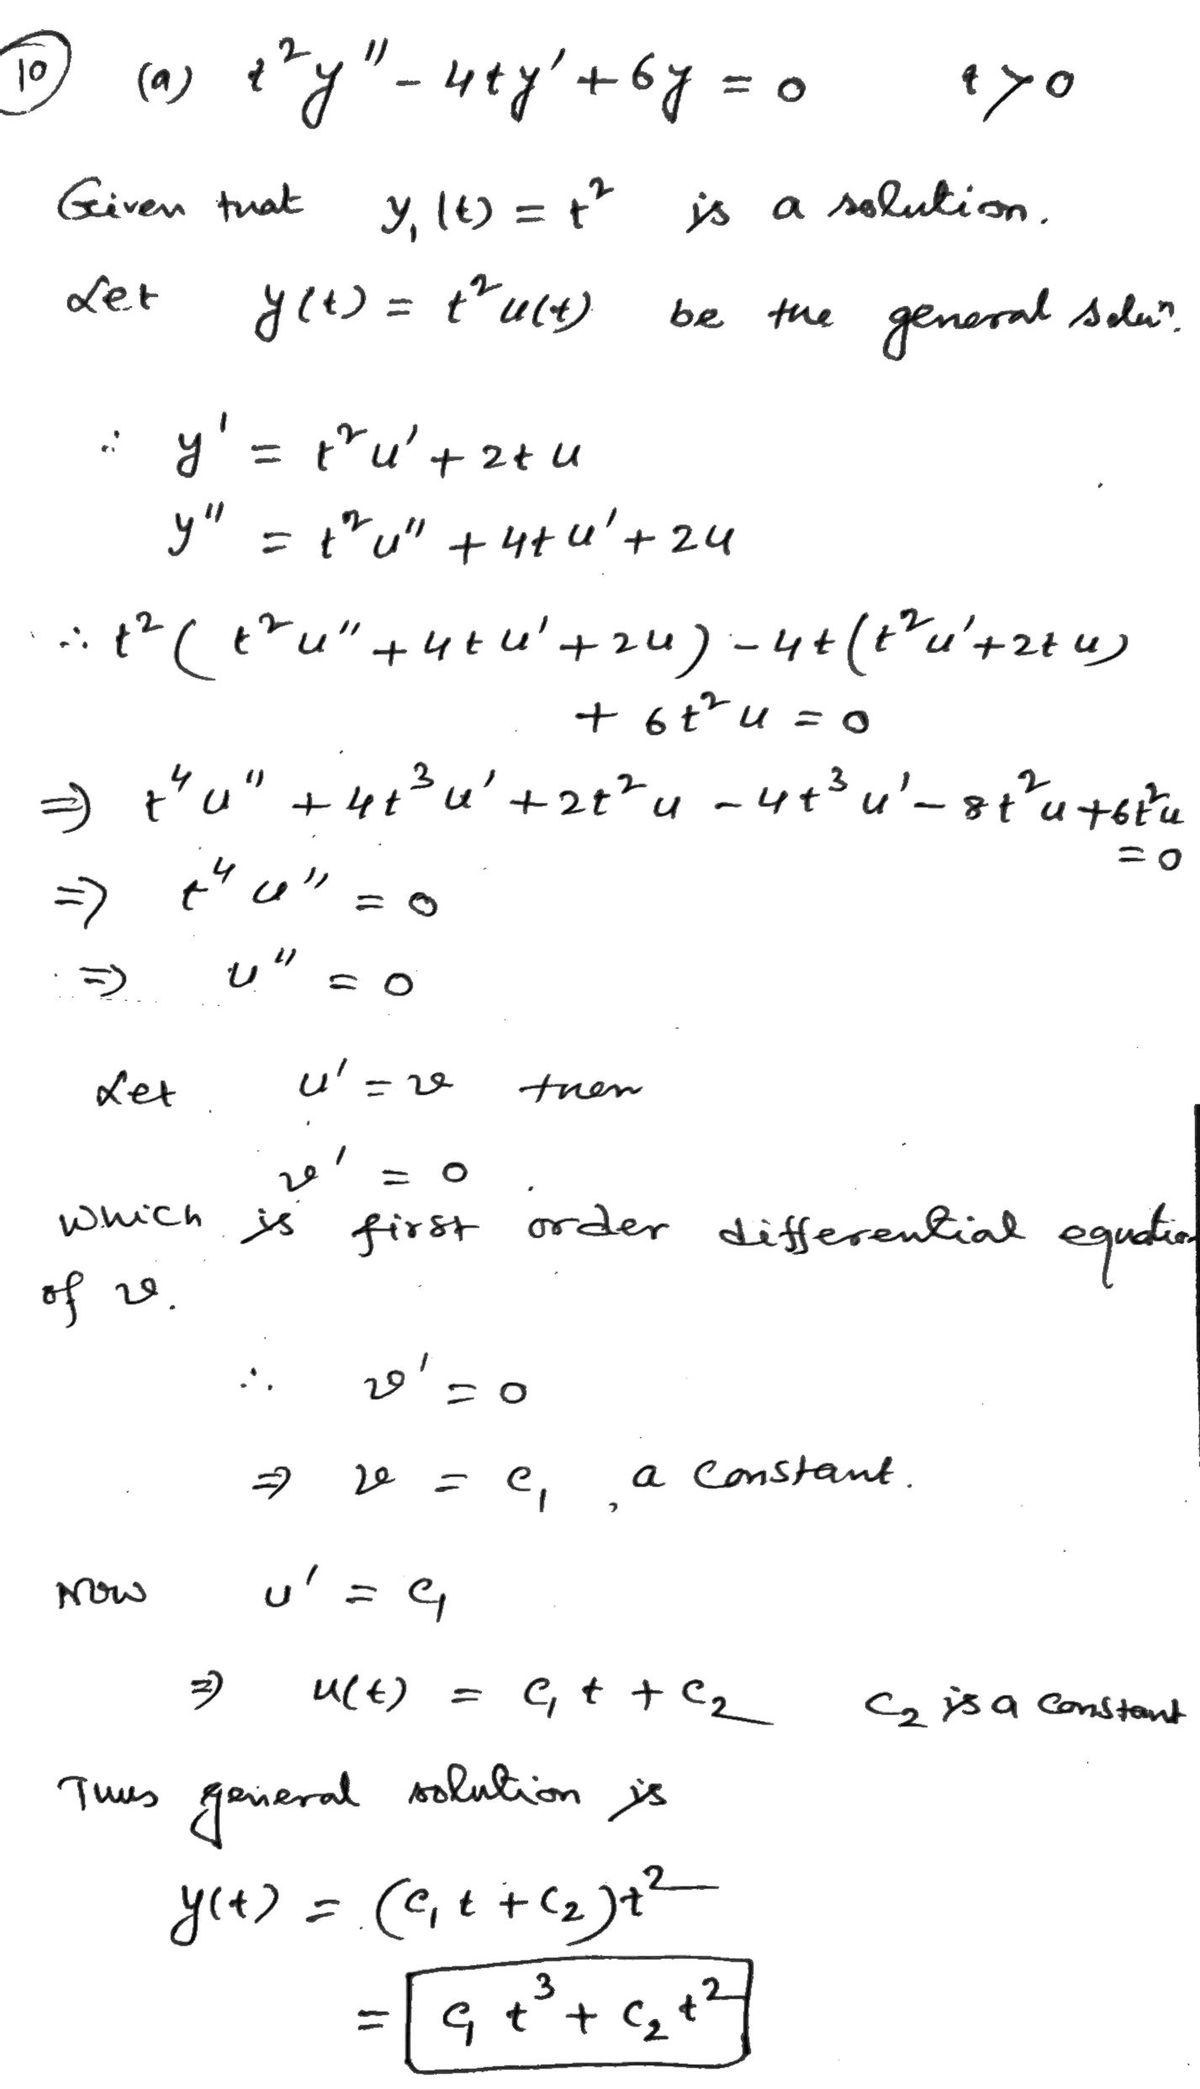 10 (a) t²y" - 4ty' + 6y = 0 t > 0
Given that y₁(t) = t² is a solution.
Let y(t) = t²u(t) be the general soluⁿ.
∴ y' = t²u' + 2tu
y" = t²u" + 4tu' + 2u
∴ t²(t²u" + 4tu' + 2u) - 4t(t²u' + 2tu)
+ 6t²u = 0
⇒ t⁴u" + 4t³u' + 2t²u - 4t³u' - 8t²u + 6t²u
= 0
⇒ t⁴u" = 0
⇒ u" = 0
Let u' = v then
v' = 0
which is first order differential equation
of v.
∴ v' = 0
⇒ v = c₁, a constant.
Now u' = c₁
⇒ u(t) = c₁t + c₂ c₂ is a constant
Thus general solution is
y(t) = (c₁t + c₂)t²
= c₁t³ + c₂t²